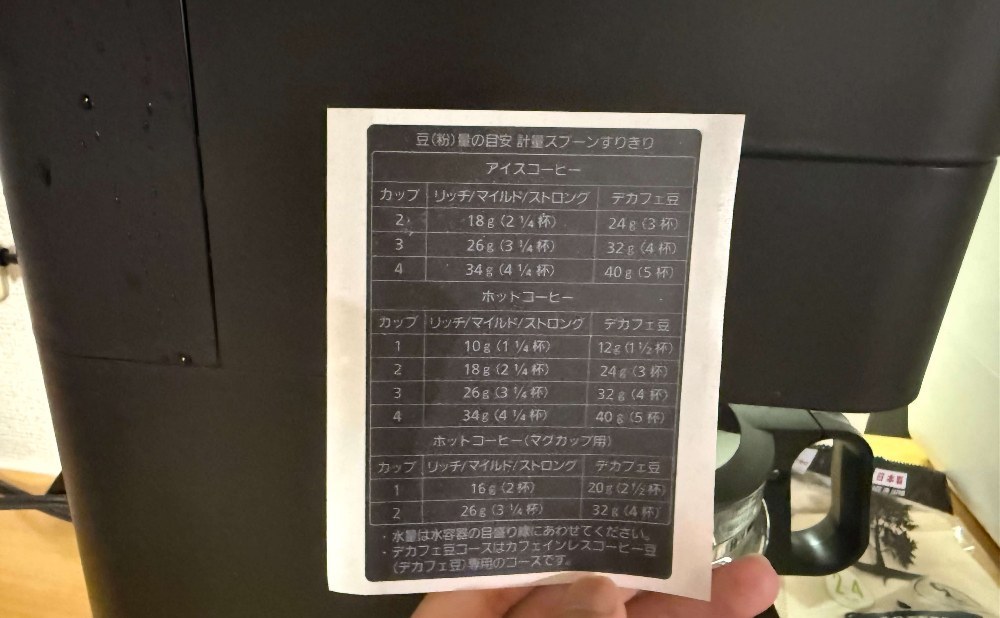 豆(粉)量の目安 計量スプーンすりきり
アイスコーヒー
カップ リッチ/マイルド/ストロング デカフェ豆
2 18g(2 1/4杯) 24g(3杯)
3 26g(3 1/4杯) 32g(4杯)
4 34g(4 1/4杯) 40g(5杯)
ホットコーヒー
カップ リッチ/マイルド/ストロング デカフェ豆
1 10g(1 1/4杯) 12g(1 1/2杯)
2 18g(2 1/4杯) 24g(3杯)
3 26g(3 1/4杯) 32g(4杯)
4 34g(4 1/4杯) 40g(5杯)
ホットコーヒー(マグカップ用)
カップ リッチ/マイルド/ストロング デカフェ豆
1 16g(2杯) 20g(2 1/2杯)
2 26g(3 1/4杯) 32g(4杯)
・水量は水容器の目盛り線にあわせてください。
・デカフェ豆コースはカフェインレスコーヒー豆
(デカフェ豆)専用のコースです。
日本製